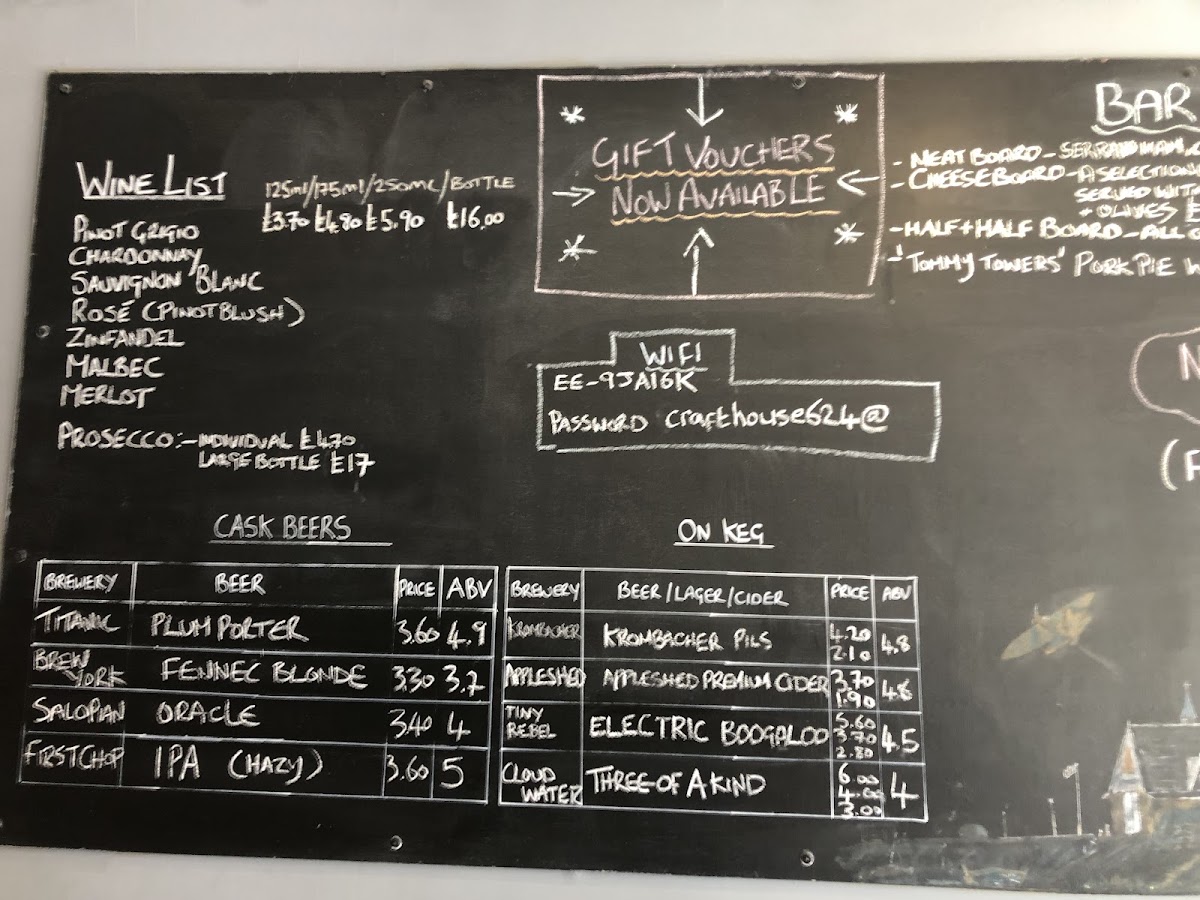 WINE LIST 125ml/175ml/250ml/BOTTLE
£3.70 £4.80 £5.90 £16.00
PINOT GRIGIO
CHARDONNAY
SAUVIGNON BLANC
ROSÉ (PINOT BLUSH)
ZINFANDEL
MALBEC
MERLOT
PROSECCO:- INDIVIDUAL £4.70
LARGE BOTTLE £17
GIFT VOUCHERS
NOW AVAILABLE
BAR
- MEAT BOARD - SERRANO HAM,
- CHEESEBOARD - A SELECTION
SERVED WITH
+ OLIVES
- HALF + HALF BOARD - ALL
- 'TOMMY TOWERS' PORK PIE W
WIFI
EE-9JA16K
PASSWORD crafthouse624@
CASK BEERS
BREWERY BEER PRICE ABV
TITANIC PLUM PORTER 3.60 4.9
BREW YORK FENNEC BLONDE 3.30 3.7
SALOPIAN ORACLE 3.40 4
FIRST CHOP IPA (HAZY) 3.60 5
ON KEG
BREWERY BEER/LAGER/CIDER PRICE ABV
KROMBACHER KROMBACHER PILS 4.20 2.10 4.8
APPLESHED APPLESHED PREMIUM CIDER 3.70 1.90 4.8
TINY REBEL ELECTRIC BOOGALOO 5.60 3.70 2.80 4.5
CLOUD WATER THREE OF A KIND 6.00 4.00 3.00 4
N
(F